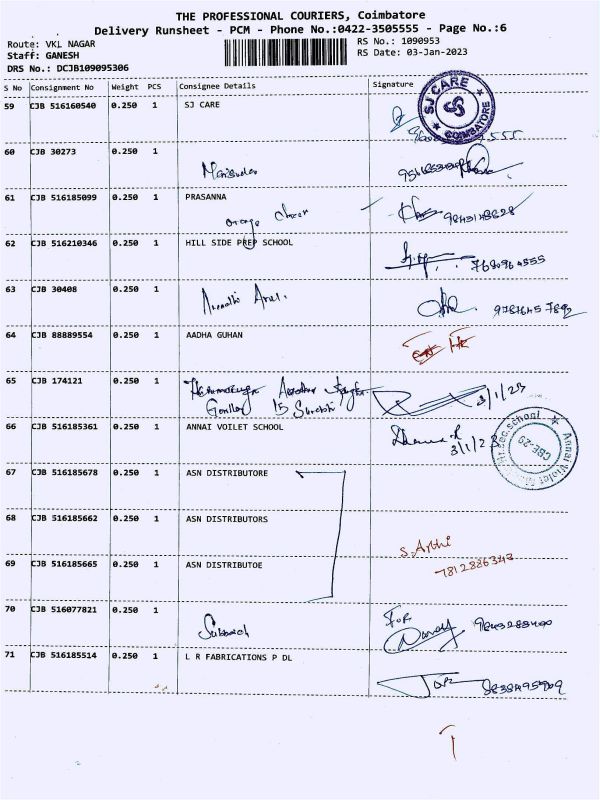 THE PROFESSIONAL COURIERS, Coimbatore
Delivery Runsheet - PCM - Phone No.:0422-3505555 - Page No.:6
Route: VKL NAGAR
RS No.: 1090953
Staff: GANESH
RS Date: 03-Jan-2023
DRS No.: DCJB109095306
S No Consignment No Weight PCS Consignee Details Signature
59 CJB 516160540 0.250 1 SJ CARE
SJ CARE
COIMBATORE
60 CJB 30273 0.250 1
61 CJB 516185099 0.250 1 PRASANNA
orange
62 CJB 516210346 0.250 1 HILL SIDE PREP SCHOOL
63 CJB 30408 0.250 1
64 CJB 88889554 0.250 1 AADHA GUHAN
65 CJB 174121 0.250 1
3/1/23
66 CJB 516185361 0.250 1 ANNAI VOILET SCHOOL
3/1/23
67 CJB 516185678 0.250 1 ASN DISTRIBUTORE
68 CJB 516185662 0.250 1 ASN DISTRIBUTORS
S. Arthi
7812886343
69 CJB 516185665 0.250 1 ASN DISTRIBUTOE
70 CJB 516077821 0.250 1
For
71 CJB 516185514 0.250 1 L R FABRICATIONS P DL